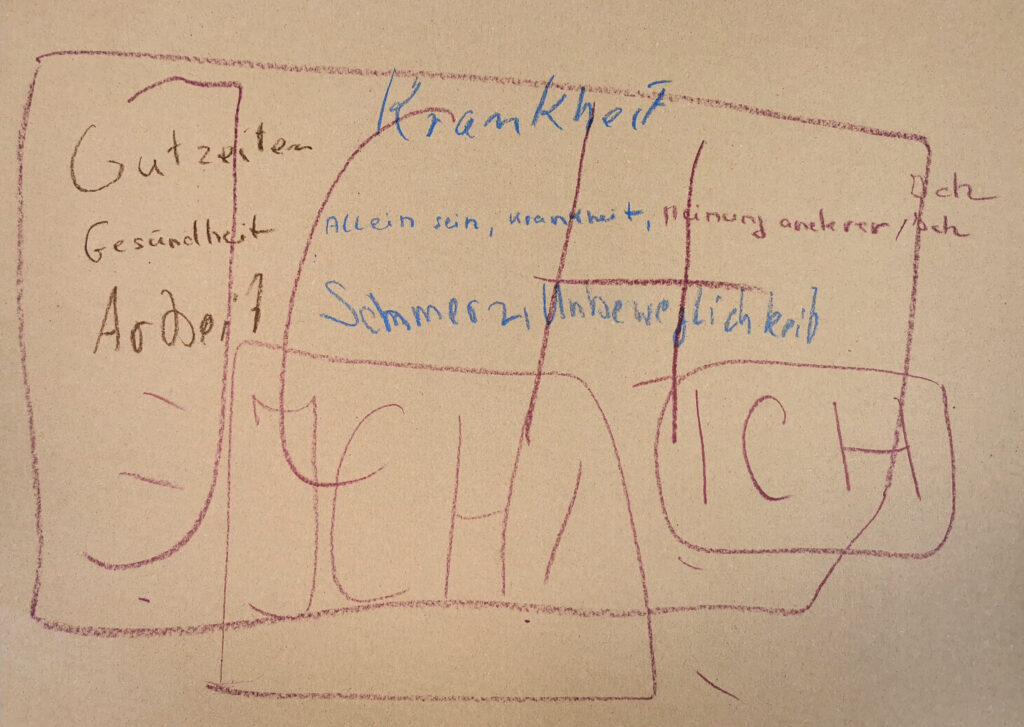 Krankheit
Gutzeiten
Ich
Gesundheit Allein sein, Krankheit, Meinung anderer / Ich
Arbeit Schmerz, Unbeweglichkeit
ICH
ICH
ICH